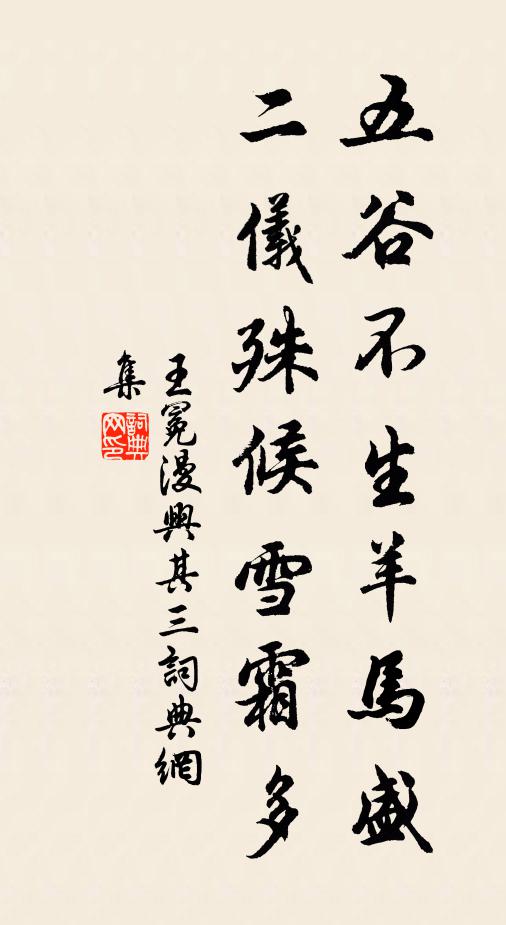 五谷不生羊馬盛
二儀殊候雪霜多
王冕漫興其三詞典網
集
詞典
网印